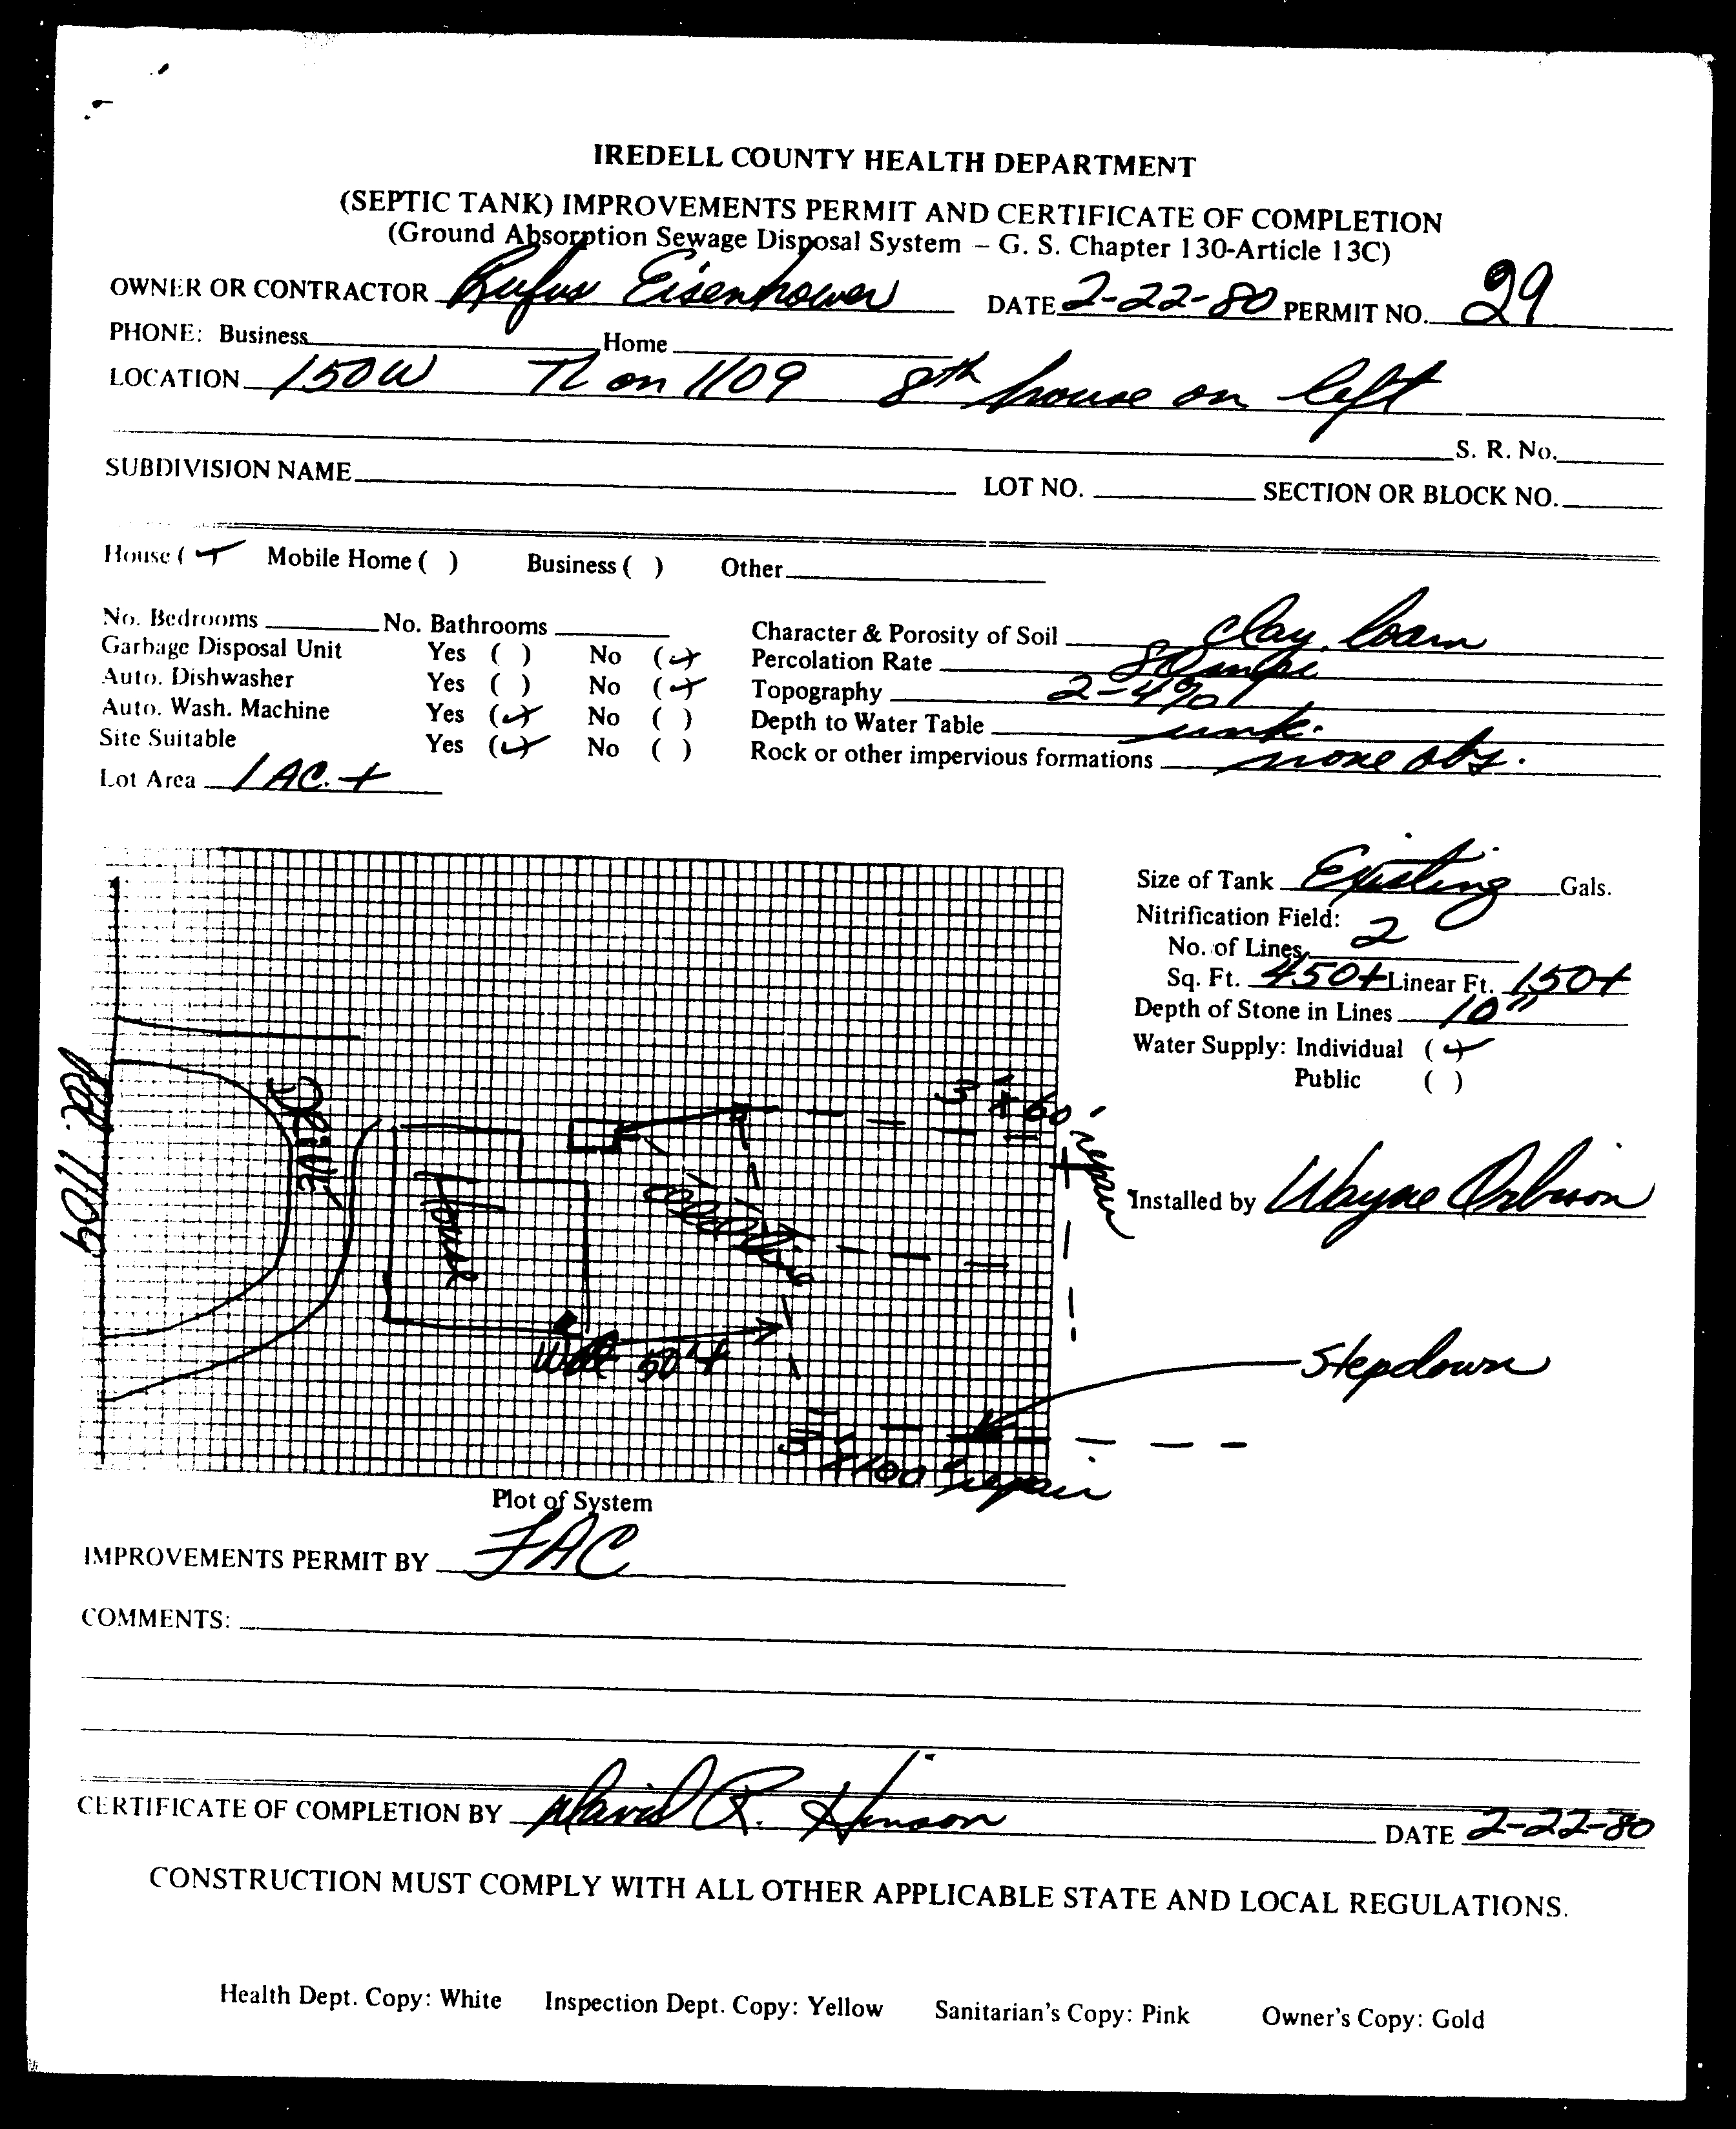 IREDELL COUNTY HEALTH DEPARTMENT
(SEPTIC TANK) IMPROVEMENTS PERMIT AND CERTIFICATE OF COMPLETION
(Ground Absorption Sewage Disposal System – G. S. Chapter 130-Article 13C)
OWNER OR CONTRACTOR Rufus Eisenhower DATE 2-22-80 PERMIT NO. 29
PHONE: Business Home
LOCATION 150W TL on 1109 8th house on left
S. R. No.
SUBDIVISION NAME LOT NO. SECTION OR BLOCK NO.
House ( ) Mobile Home ( ) Business ( ) Other
No. Bedrooms No. Bathrooms Character & Porosity of Soil clay loam
Garbage Disposal Unit Yes ( ) No ( ) Percolation Rate 80 mpi
Auto. Dishwasher Yes ( ) No ( ) Topography 2-4%
Auto. Wash. Machine Yes ( ) No ( ) Depth to Water Table unk.
Site Suitable Yes ( ) No ( ) Rock or other impervious formations none obs.
Lot Area 1 AC. +
Size of Tank Existing Gals.
Nitrification Field:
No. of Lines 2
Sq. Ft. 450+ Linear Ft. 150+
Depth of Stone in Lines 10"
Water Supply: Individual ( )
Public ( )
Rd. 1109
Drive
House
3' x 60' repair
old line
Well 50'+
Installed by Wayne Orbison
Stepdown
3' x 100' repair
Plot of System
IMPROVEMENTS PERMIT BY JAC
COMMENTS:
CERTIFICATE OF COMPLETION BY David R. Hinson DATE 2-22-80
CONSTRUCTION MUST COMPLY WITH ALL OTHER APPLICABLE STATE AND LOCAL REGULATIONS.
Health Dept. Copy: White Inspection Dept. Copy: Yellow Sanitarian's Copy: Pink Owner's Copy: Gold